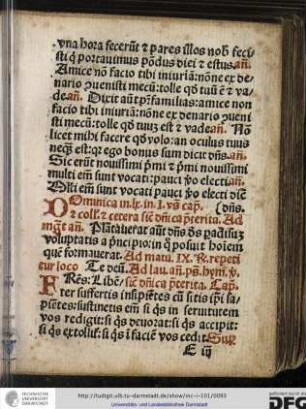 vna hora fecerūt ⁊ pares illos nob̄ feci-
sti q̇ portauimus pōdus diei ⁊ estus.añ.
Amice nō facio tibi iniuriā: nōne ex de-
nario ꝯuenisti mecū: tolle qd̄ tuū ē ⁊ va-
de.añ. Dixit aūt pr̄familias: amice non
facio tibi iniuriā: nōne ex denario ꝯueni
sti mecū: tolle qd̄ tuuȝ est ⁊ vade.añ. Nō
licet mihi facere qd̄ volo: an oculus tuus
neq̄ȝ est: q̇ ego bonus sum dicit dn̄s.añ.
Sic erūt nouissimi p̄mi ⁊ p̄mi nouissimi
multi em̄ sunt vocati: pauci ꝟo electi.añ.
Mlti em̄ sunt vocati pauci ꝟo electi dic̄
Dominica in.lx. in .I. vꝰ. cap. (dn̄s.
⁊ coll. ⁊ cetera sic̄ dn̄ica p̄terita. Ad
mḡt añ. Plātauerat aūt dn̄s ds̄ padisuȝ
voluptatis a p̄ncipio: in q̇ posuit hoīem
que formauerat. Ad matu. IX. ℟. repeti
tur loco Te deū. Ad lau. añ. ps. hym. ꝟ.
FRēs: Libē/ sic̄ dn̄ica p̄terita. Cap.
ter suffertis insipiētes cū sitis ip̄i sa-
piētes: sustinetis em̄ si q̇s in seruitutem
vos redigit: si q̇s deuorat: si q̇s accipit:
si q̇s extollit: si q̇s ī faciē vos cedit Sup
E iij
TECHNISCHE UNIVERSITÄT DARMSTADT
http://tudigit.ulb.tu-darmstadt.de/show/inc-i-101/0093
Universitäts- und Landesbibliothek Darmstadt
gefördert durch die
DFG